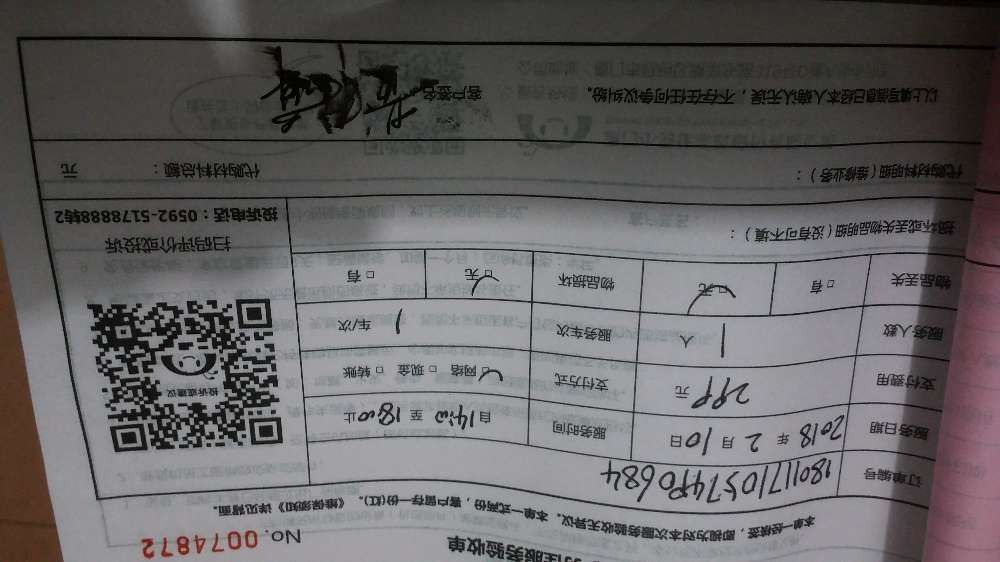 服务验收单
No. 0074872
本一经核签,即视为对本次服务验收无异议。本单一式两份,客户留存一份(红)。《维保须知》详见背面。
订单编号
服务日期 2018 年 2 月 10 日 服务时间 自 14:00 至 18:00 止
支付费用 299 元 支付方式 ☑网络 □现金 □转账
服务人数 1 人 服务车次 1 车/次
物品丢失 □有 ☑无 物品损坏 ☑无 □有
投诉或建议
扫码评价或投诉
投诉电话:0592-5178888转2
损坏或丢失物品明细(没有可不填):
代购材料明细(维修业务): 代购材料总额: 元
以上填写信息已经本人确认无误,不存在任何争议纠纷。 客户签名: